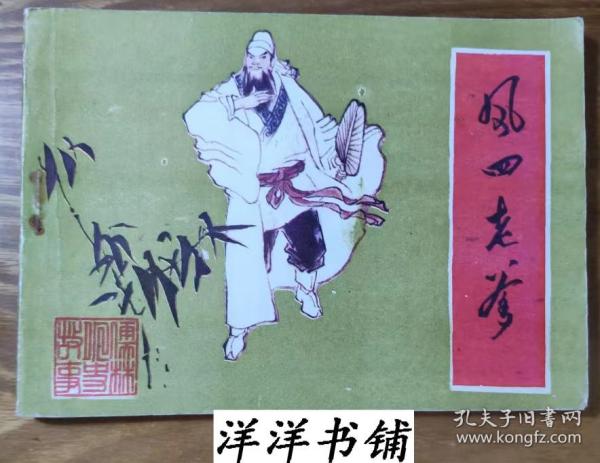 凤四老爹
儒林
外史
故事
洋洋书铺
孔夫子旧书网
www.kongfz.com